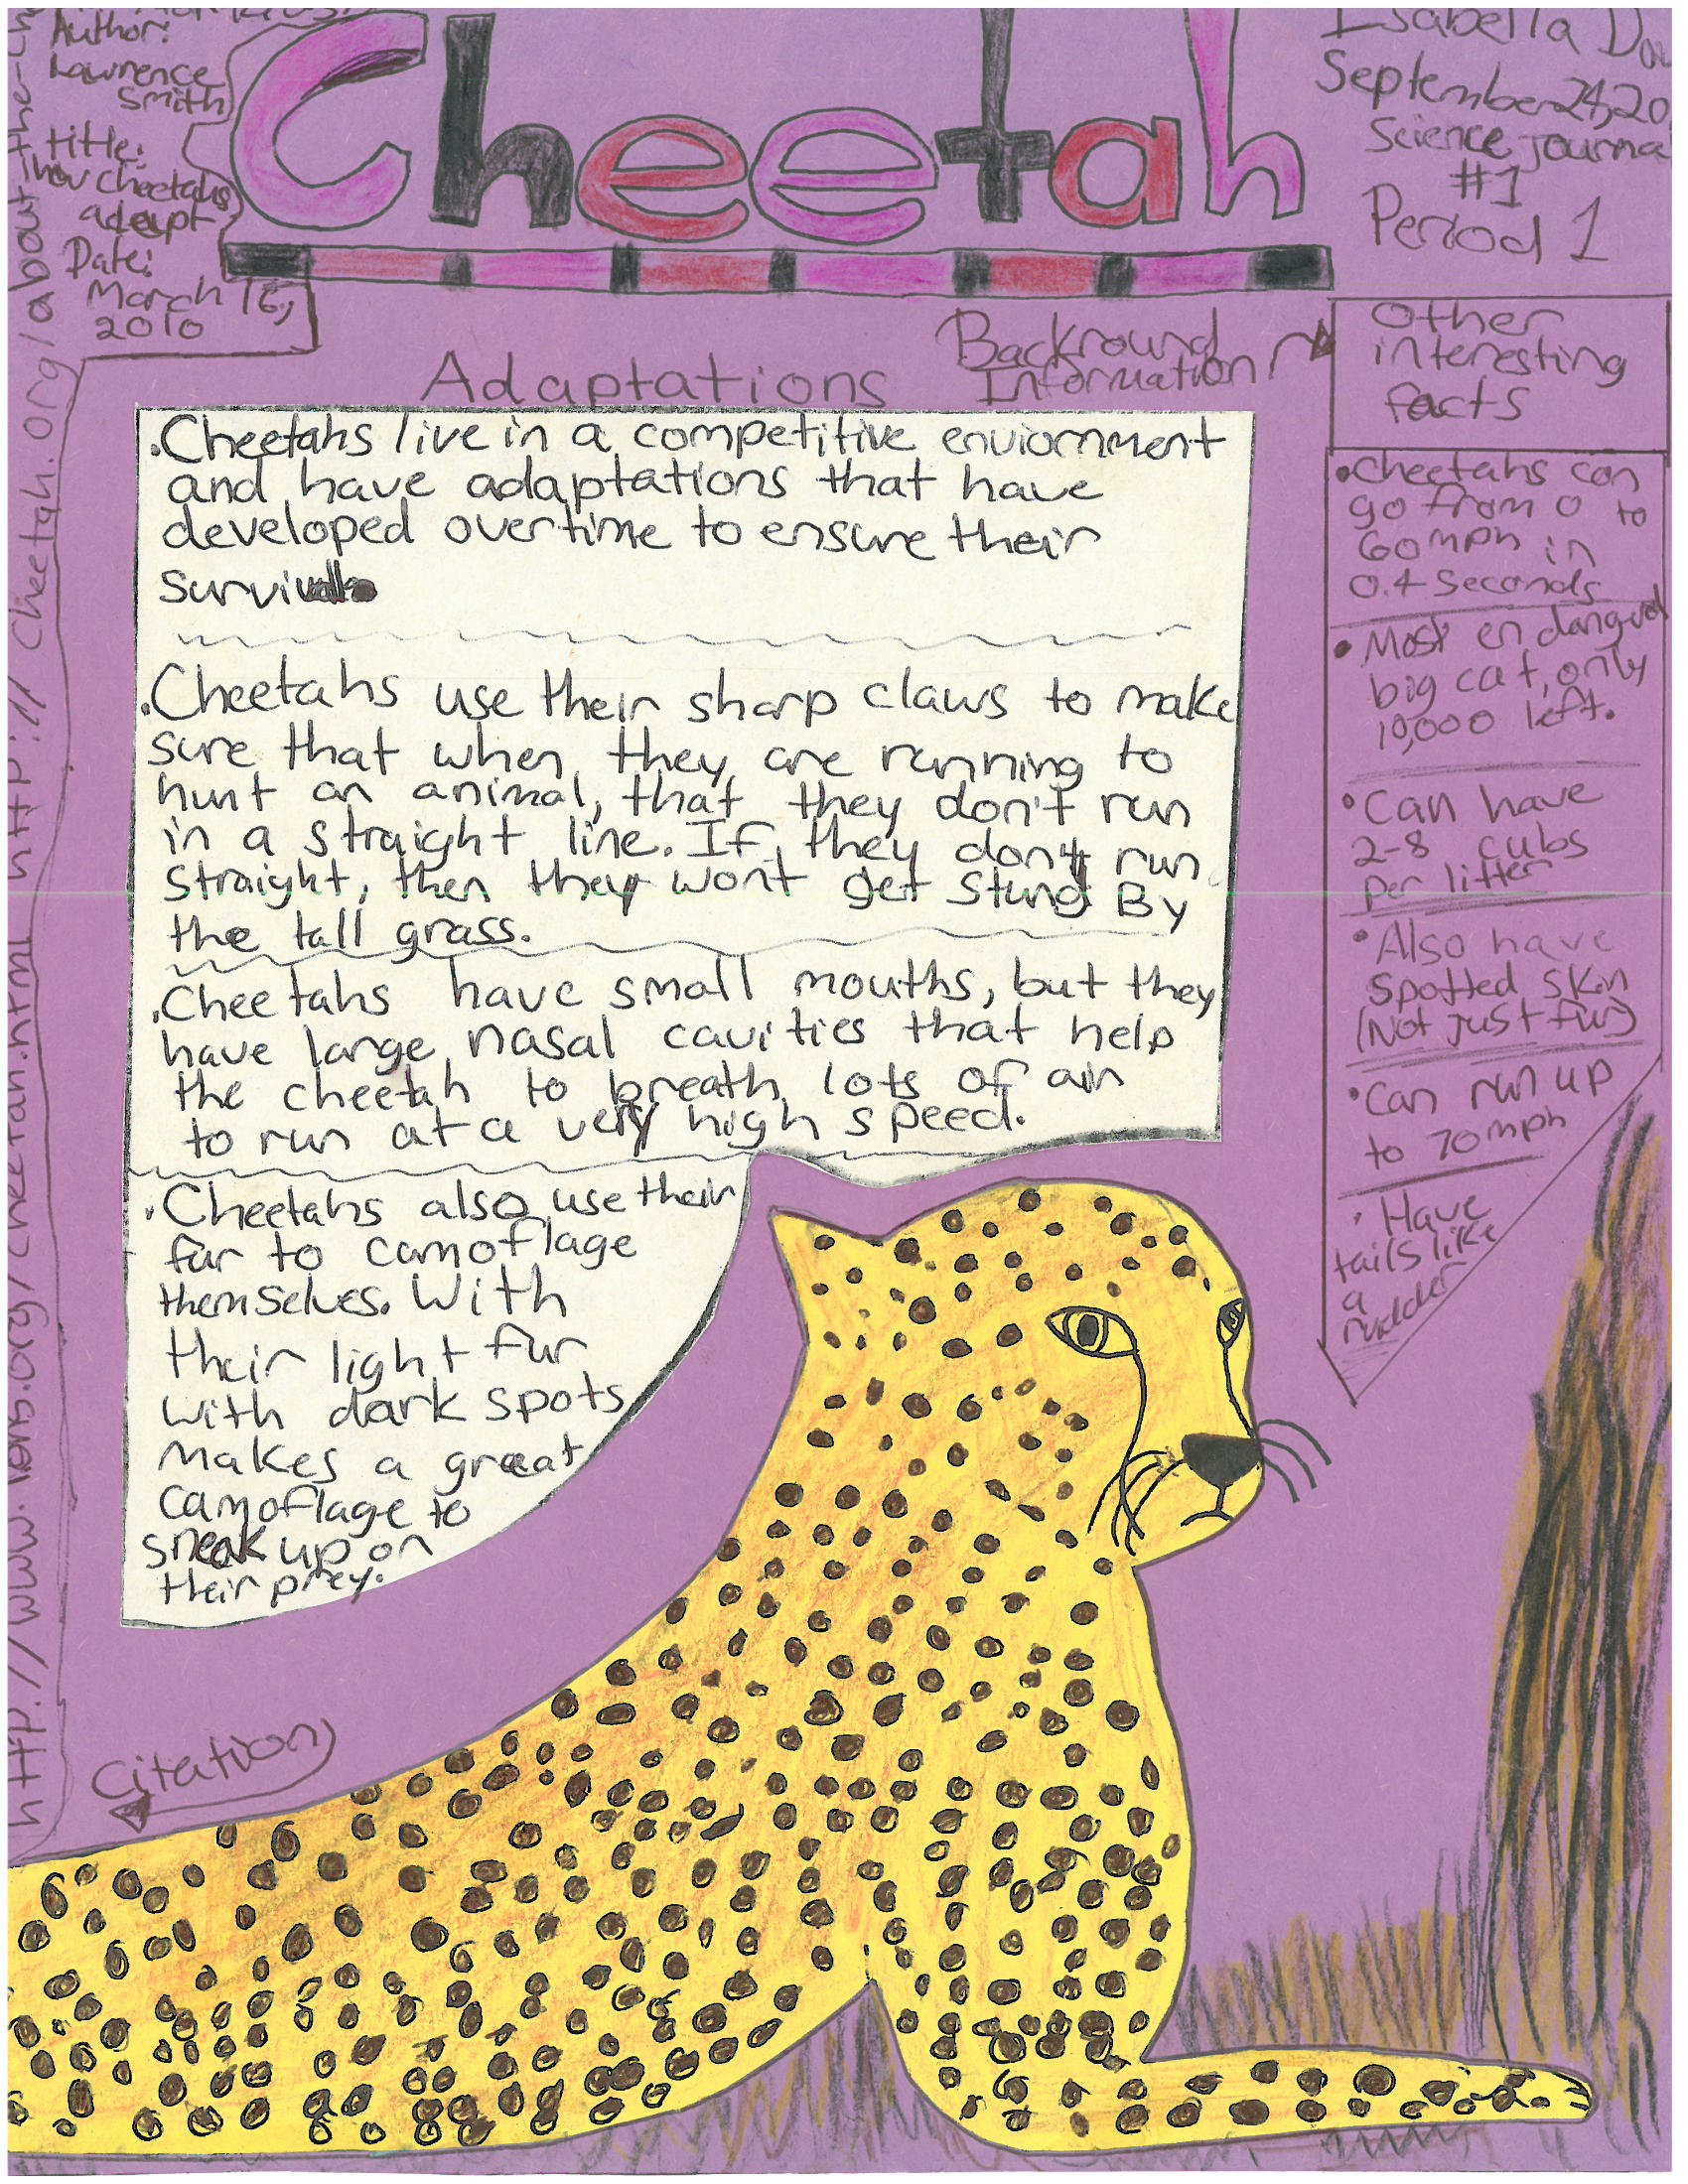 Author:
Lawrence
Smith
title:
how cheetahs
adapt
Date:
March 16,
2010
Cheetah
Isabella
September 24, 20
Science Journa
#1
Period 1
Adaptations
Backround
Information
.Cheetahs live in a competitive enviornment
and have adaptations that have
developed overtime to ensure their
survival.
.Cheetahs use their sharp claws to make
sure that when they are running to
hunt an animal, that they don't run
in a straight line. If they don't run
straight, then they wont get stung By
the tall grass.
.Cheetahs have small mouths, but they
have large nasal cavities that help
the cheetah to breath lots of air
to run at a very high speed.
.Cheetahs also use their
fur to camoflage
themselves. With
their light fur
with dark spots
makes a great
camoflage to
sneak up on
their prey.
Other
interesting
facts
•Cheetahs can
go from 0 to
60mph in
0.4 seconds
•Most endangered
big cat, only
10,000 left.
•Can have
2-8 cubs
per litter
•Also have
spotted skin
(Not just fur)
•Can run up
to 70mph
•Have
tails like
a
rudder
Citation
http://cheetah.org/about-the-che